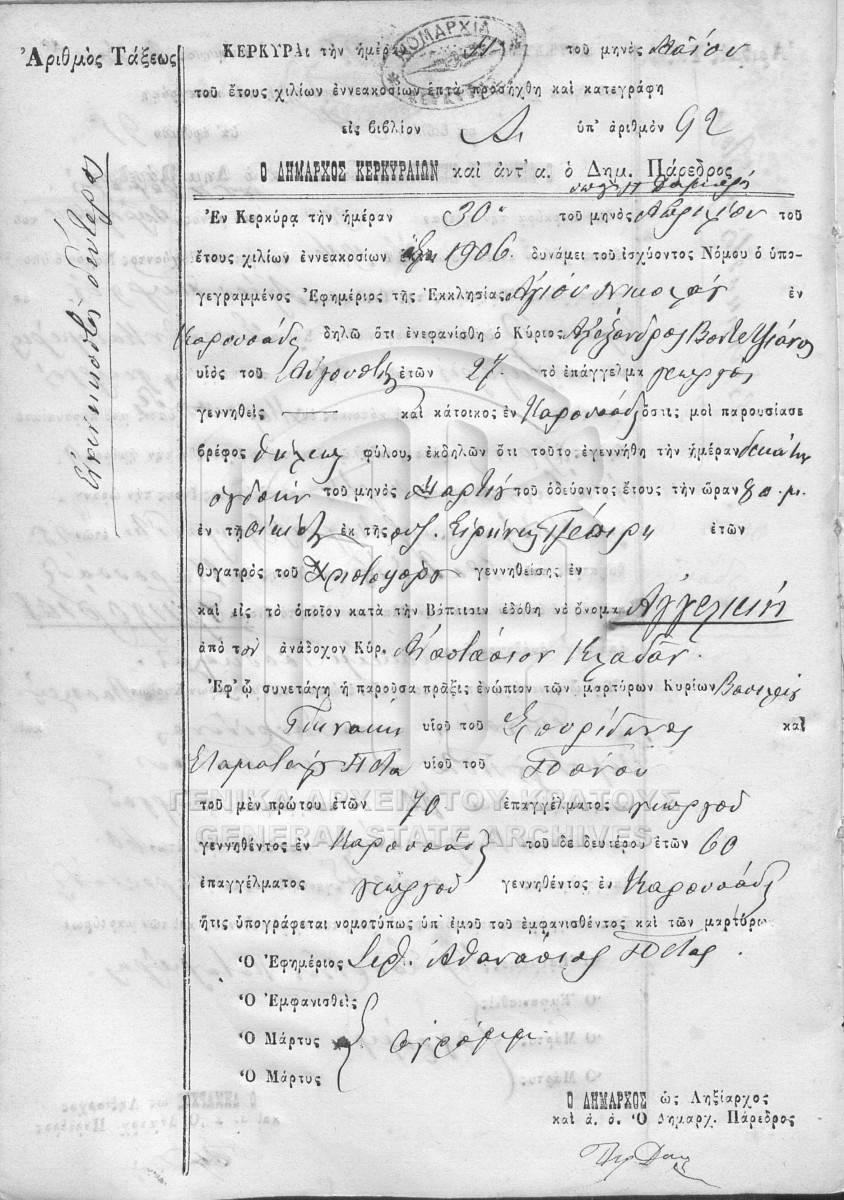 Ἀριθμὸς Τάξεως
Εἰκοστὸς δεύτερος
ΝΟΜΑΡΧΙΑ
ΚΕΡΚΥΡΑι τὴν ἡμέραν τοῦ μηνὸς Μαΐου
τοῦ ἔτους χιλίων ἐννεακοσίων ἑπτὰ προσήχθη καὶ κατεγράφη
εἰς βιβλίον Α. ὑπ' ἀριθμὸν 92
Ο ΔΗΜΑΡΧΟΣ ΚΕΡΚΥΡΑΙΩΝ καὶ ἀντ' α. ὁ Δημ. Πάρεδρος
Ἐν Κερκύρᾳ τὴν ἡμέραν 30 τοῦ μηνὸς Ἀπριλίου τοῦ
ἔτους χιλίων ἐννεακοσίων 1906. δυνάμει τοῦ ἰσχύοντος Νόμου ὁ ὑπο-
γεγραμμένος Ἐφημέριος τῆς Ἐκκλησίας Ἁγίου Νικολάου ἐν
Καρουσάδ. δηλῶ ὅτι ἐνεφανίσθη ὁ Κύριος Ἀλέξανδρος Βοντετσιάνος
υἱὸς τοῦ Αὐγουστῆ ἐτῶν 27. τὸ ἐπάγγελμα γεωργὸς
γεννηθεὶς καὶ κάτοικος ἐν Καρουσάδ. ὅστις μοὶ παρουσίασε
βρέφος θήλεος φύλου, ἐκδηλῶν ὅτι τοῦτο ἐγεννήθη τὴν ἡμέραν δεκάτην
ὀγδόην τοῦ μηνὸς Μαρτίου τοῦ ὁδεύοντος ἔτους τὴν ὥραν 8 π.μ.
ἐν τῇ οἰκίᾳ ἐκ τῆς συζ. Εἰρήνης ἐτῶν
θυγατρὸς τοῦ Χριστοφόρου γεννηθείσης ἐν
καὶ εἰς τὸ ὁποῖον κατὰ τὴν Βάπτισιν ἐδόθη τὸ ὄνομα Ἀγγελικὴ
ἀπὸ τὸν ἀνάδοχον Κύρ. Ἀναστάσιον Κλαδᾶν.
Ἐφ' ᾧ συνετάγη ἡ παροῦσα πρᾶξις ἐνώπιον τῶν μαρτύρων Κυρίων Βασιλείου
υἱοῦ τοῦ Σπυρίδωνος καὶ
Σταματέλου Πέτα υἱοῦ τοῦ Πάνου
ΓΕΝΙΚΑ ΑΡΧΕΙΑ ΤΟΥ ΚΡΑΤΟΥΣ
τοῦ μὲν πρώτου ἐτῶν 70 ἐπαγγέλματος γεωργοῦ
GENERAL STATE ARCHIVES
γεννηθέντος ἐν Καρουσάδ. τοῦ δὲ δευτέρου ἐτῶν 60
ἐπαγγέλματος γεωργοῦ γεννηθέντος ἐν Καρουσάδ.
ἥτις ὑπογράφεται νομοτύπως ὑπ' ἐμοῦ τοῦ ἐμφανισθέντος καὶ τῶν μαρτύρω
Ὁ Ἐφημέριος Ἱερ. Ἀθανάσιος Πέτας.
Ὁ Ἐμφανισθεὶς
Ὁ Μάρτυς ἀγράμμ.
Ὁ Μάρτυς
Ο ΔΗΜΑΡΧΟΣ ὡς Ληξίαρχος
καὶ ἀ. ἀ. Ὁ Δημαρχ. Πάρεδρος